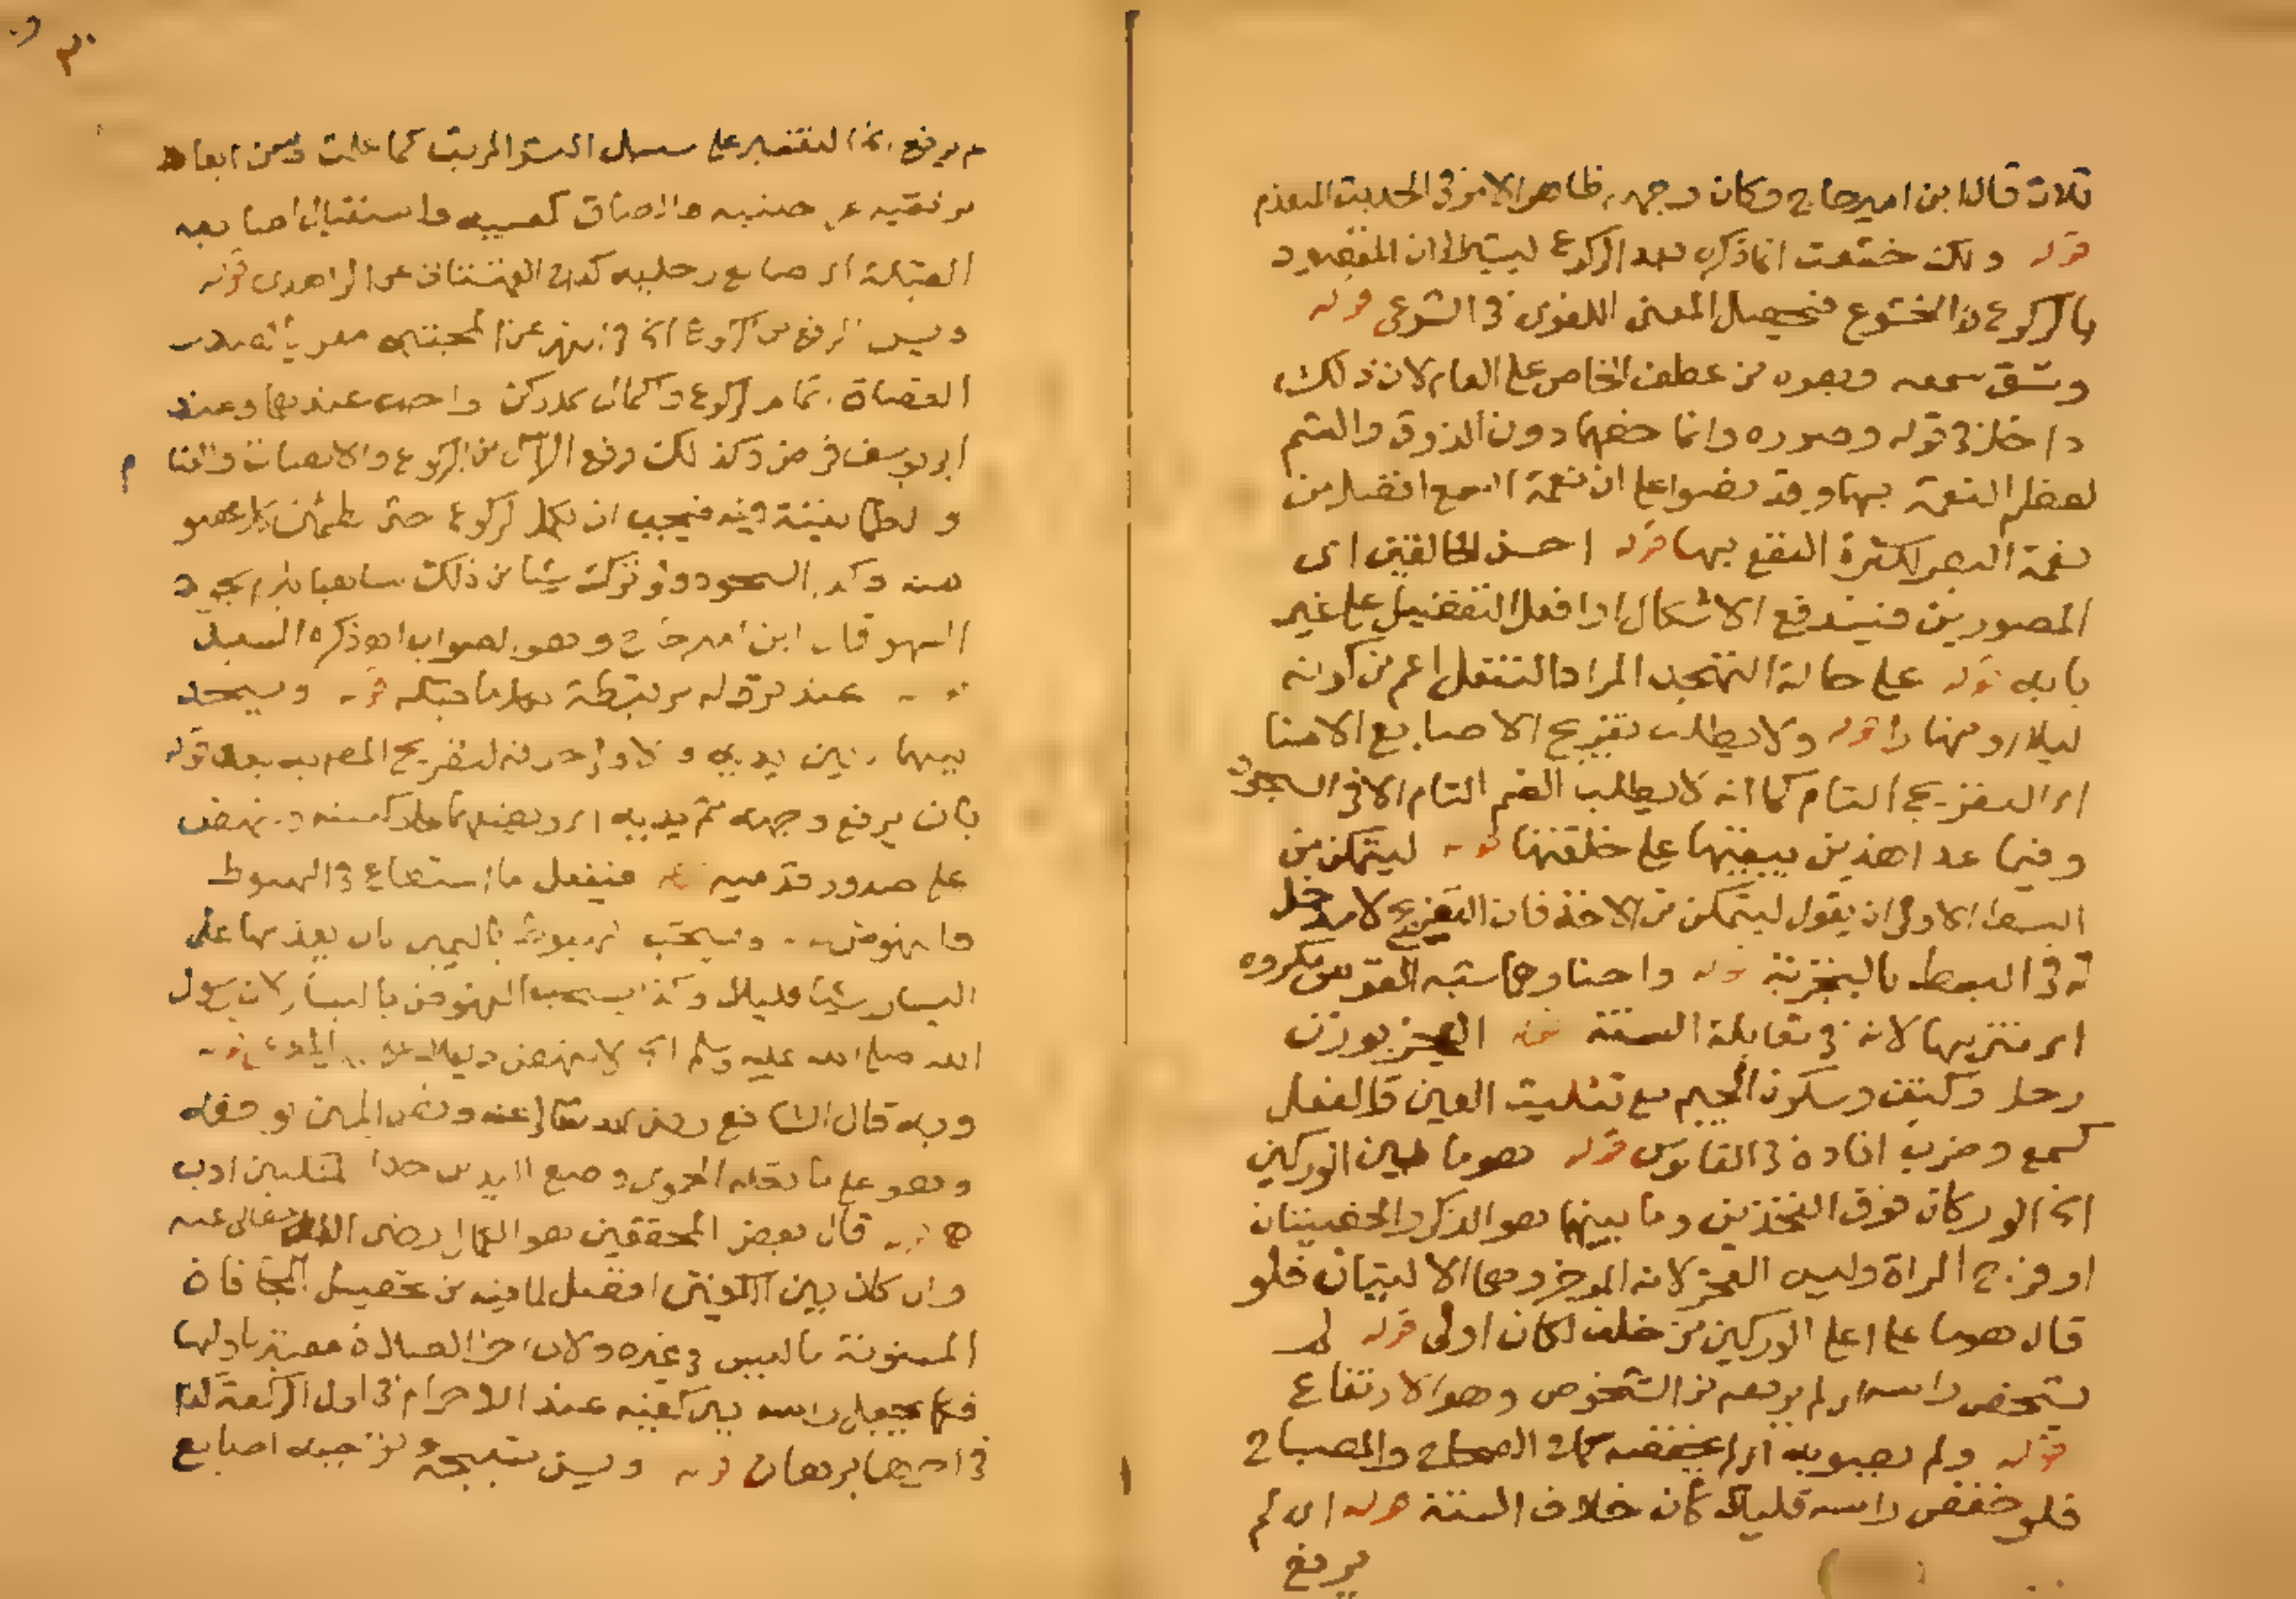 ثلاث قاله ابن امير حاج وكان وجهه ظاهر الامر فى الحديث المتقدم
قوله ولك خشعت انما ذكره بعد الركوع ليشير الى ان المقصود
بالركوع الخشوع فيحصل المعنى اللغوى فى الشرعى قوله
وشق سمعه وبصره من عطف الخاص على العام لان ذلك
داخل فى قوله وصوره وانما خصهما دون الذوق والشم
لعظم النعمة بهما وقد نصوا على ان نعمة السمع افضل من
نعمة البصر لكثرة النفع بها قوله احسن الخالقين اى
المصورين فيندفع الاشكال اذ افعل التفضيل على غير
بابه قوله على حالة التهجد المراد التنفل اعم من كونه
ليلا او نهارا قوله ولا يطلب تفريج الاصابع الا هنا
اى التفريج التام كما انه لا يطلب الضم التام الا فى السجود
وفيما عدا هذين يبقيها على خلقتها قوله ليتمكن من
البسط الاولى ان يقول ليتمكن من الاخذ فان التفريج لا مدخل
له فى البسط بالتجربة قوله واحناؤهما شبه القوس مكروه
اى تنزيها لانه فى مقابلة السنة قوله العجز بوزن
رجل وكتف وسكون الجيم مع تثليث العين والفعل
كسمع وضرب افاده فى القاموس قوله هو ما بين الوركين
الخ الوركان فوق الفخذين وما بينهما هو الذكر والخصيتان
او فرج المراة وليس العجز لانه الموخر وهى الاليتان فلو
قال هو ما على اعلى الوركين من خلف لكان اولى قوله لم
يشخص راسه اى لم يرفعه من الشخوص وهو الارتفاع
قوله ولم يصوبه اى لم يخفضه كما فى الصحاح والمصباح
فلو خفض راسه قليلا كان خلاف السنة قوله اى لم
يرفع
على سبيل كما علمت ويسن ابعاد
مرفقيه عن جنبيه والصاق كعبيه واستقبال اصابعه
القبلة اى اصابع رجليه كذا فى القهستانى عن الزاهدى قوله
وليس الرفع من الركوع الخ فى النهر عن المجتبى
القضاة تمام الركوع واكمال كل ركن واجب عندهما وعند
ابى يوسف فرض وكذلك رفع الراس من الركوع والانتصاب والقيام
والطمانينة فيه فيجب ان يكمل الركوع حتى يطمئن كل عضو
منه وكذا السجود ولو ترك شيئا من ذلك ساهيا يلزم سجود
السهو قال ابن امير حاج وهو الصواب اهـ ذكره السيد
عند نزوله مرتبطة بما قبله قوله ويسجد
بينهما بين يديه
بان يرفع وجهه ثم يديه
على صدور قدميه قوله فيفعل ما استطاع فى الهبوط
والنهوض ويستحب الهبوط باليمين بان يقدمها على
اليسار شيئا قليلا وكذا يستحب النهوض باليسار لان رسول
الله صلى الله عليه وسلم
وبه قال الشافعى رضى الله تعالى عنه
وهو على ما نقله الحموى وضع اليدين حذا المنكبين ادب
قوله قال بعض المحققين هو الكمال رضى الله تعالى عنه
وان كان بين الكفين افضل لما فيه من تحصيل المجافاة
المسنونة ما ليس فى غيره ولان اخر الصلاة معتبر باولها
فكما يجعل راسه بين كفيه عند الاحرام فى اول الركعة كذا
فى اخرها برهان قوله ويسن تسبيحه وتوجيه اصابع